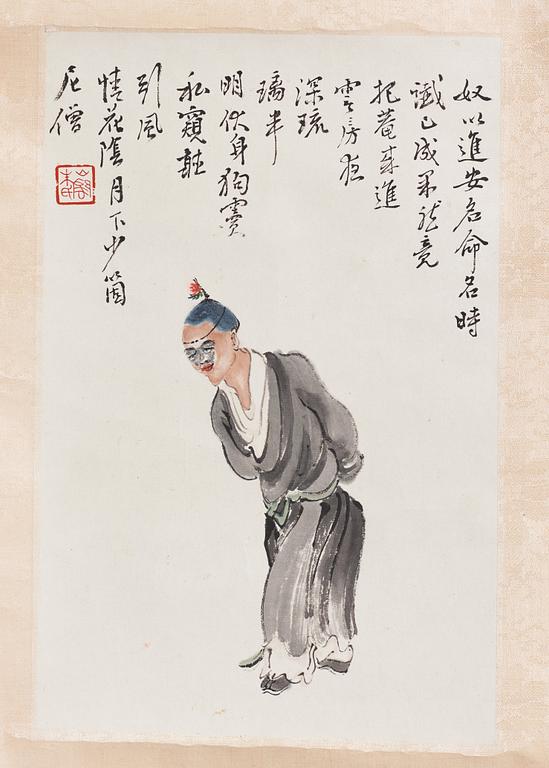 奴以進安名命名時
讖已成果然竟
把菴來進
雲房夜
深琉
璃半
明伏身狗竇
私窺聽
引風
情花陰月下少箇
尼僧